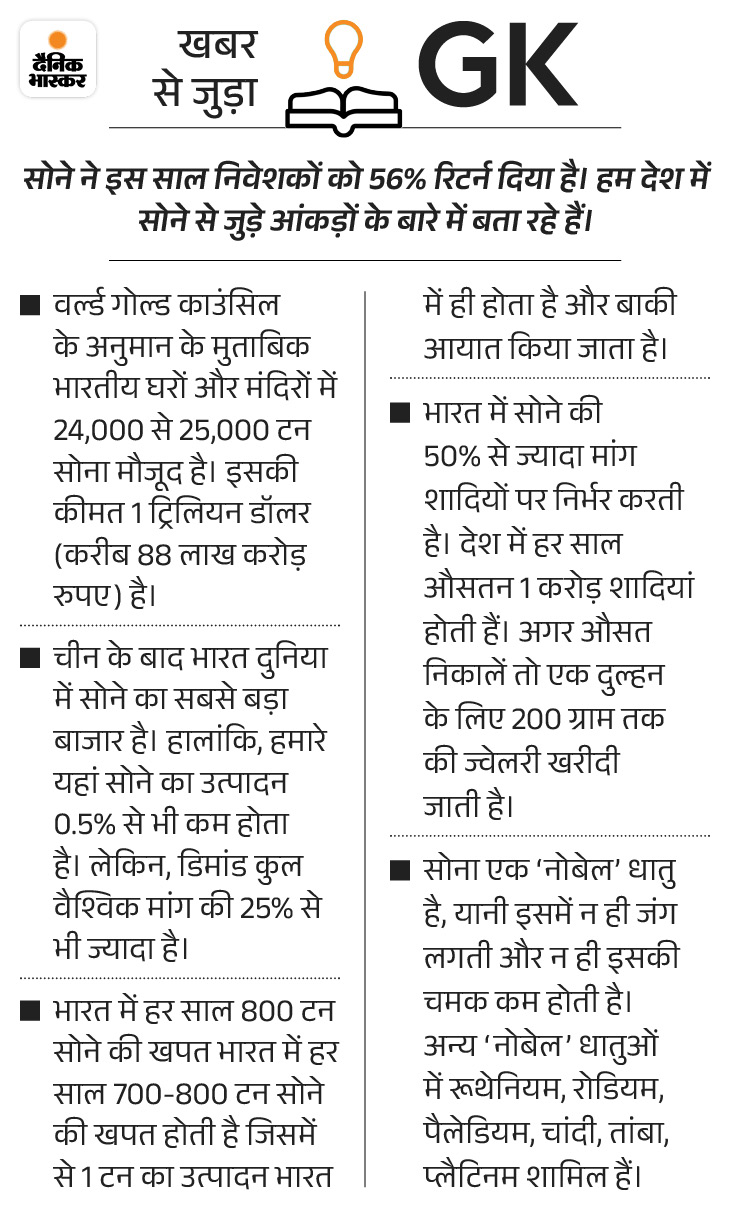 दैनिक
भास्कर
खबर
से जुड़ा
GK
सोने ने इस साल निवेशकों को 56% रिटर्न दिया है। हम देश में
सोने से जुड़े आंकड़ों के बारे में बता रहे हैं।
वर्ल्ड गोल्ड काउंसिल
के अनुमान के मुताबिक
भारतीय घरों और मंदिरों में
24,000 से 25,000 टन
सोना मौजूद है। इसकी
कीमत 1 ट्रिलियन डॉलर
(करीब 88 लाख करोड़
रुपए) है।
चीन के बाद भारत दुनिया
में सोने का सबसे बड़ा
बाजार है। हालांकि, हमारे
यहां सोने का उत्पादन
0.5% से भी कम होता
है। लेकिन, डिमांड कुल
वैश्विक मांग की 25% से
भी ज्यादा है।
भारत में हर साल 800 टन
सोने की खपत भारत में हर
साल 700-800 टन सोने
की खपत होती है जिसमें
से 1 टन का उत्पादन भारत
में ही होता है और बाकी
आयात किया जाता है।
भारत में सोने की
50% से ज्यादा मांग
शादियों पर निर्भर करती
है। देश में हर साल
औसतन 1 करोड़ शादियां
होती हैं। अगर औसत
निकालें तो एक दुल्हन
के लिए 200 ग्राम तक
की ज्वेलरी खरीदी
जाती है।
सोना एक ‘नोबेल’ धातु
है, यानी इसमें न ही जंग
लगती और न ही इसकी
चमक कम होती है।
अन्य ‘नोबेल’ धातुओं
में रूथेनियम, रोडियम,
पैलेडियम, चांदी, तांबा,
प्लैटिनम शामिल हैं।